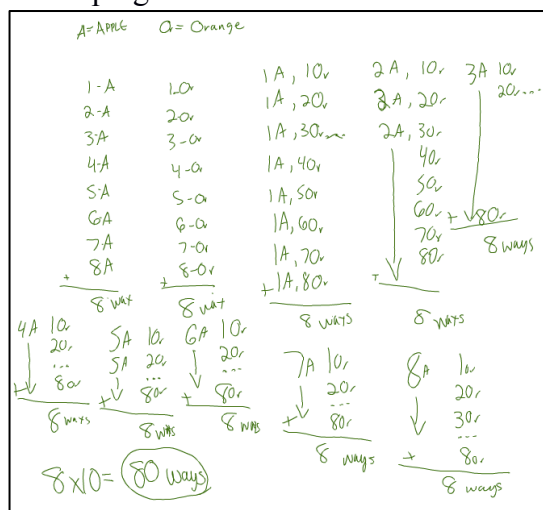 A=APPLE Or=Orange
1-A
2-A
3-A
4-A
5-A
6A
7A
+ 8A
8 way
1-Or
2-Or
3-Or
4-Or
5-Or
6-Or
7-Or
+ 8-Or
8 way
1A, 1Or
1A, 2Or
1A, 3Or...
1A, 4Or
1A, 5Or
1A, 6Or
1A, 7Or
+ 1A, 8Or
8 ways
2A, 1Or
2A, 2Or
2A, 3Or
4Or
5Or
6Or
7Or
8Or
+
8 ways
3A 1Or
2Or...
+ 8Or
8 ways
4A 1Or
2Or
...
+ 8Or
8 ways
5A 1Or
5A 2Or
...
+ 8Or
8 ways
6A 1Or
2Or
...
+ 8Or
8 ways
7A 1Or
2Or
...
+ 8Or
8 ways
8A 1Or
2Or
3Or
...
+ 8Or
8 ways
8x10= 80 ways